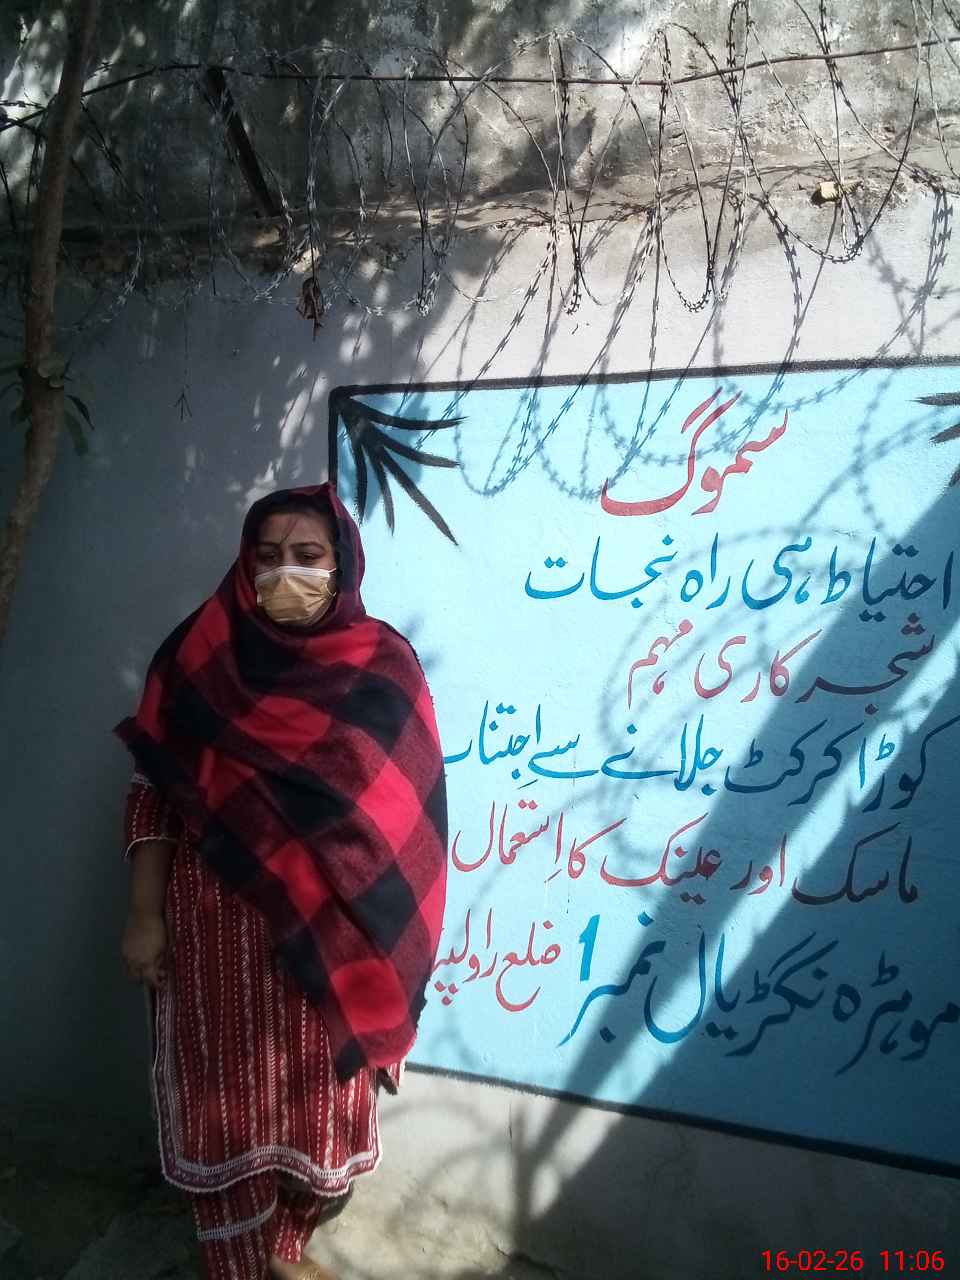 سموگ
احتیاط ہی راہ نجات
شجر کاری مہم
کوڑا کرکٹ جلانے سے اجتناب
ماسک اور عینک کا اِستعمال
موہڑہ نگڑیال نمبر 1 ضلع
16-02-26 11:06